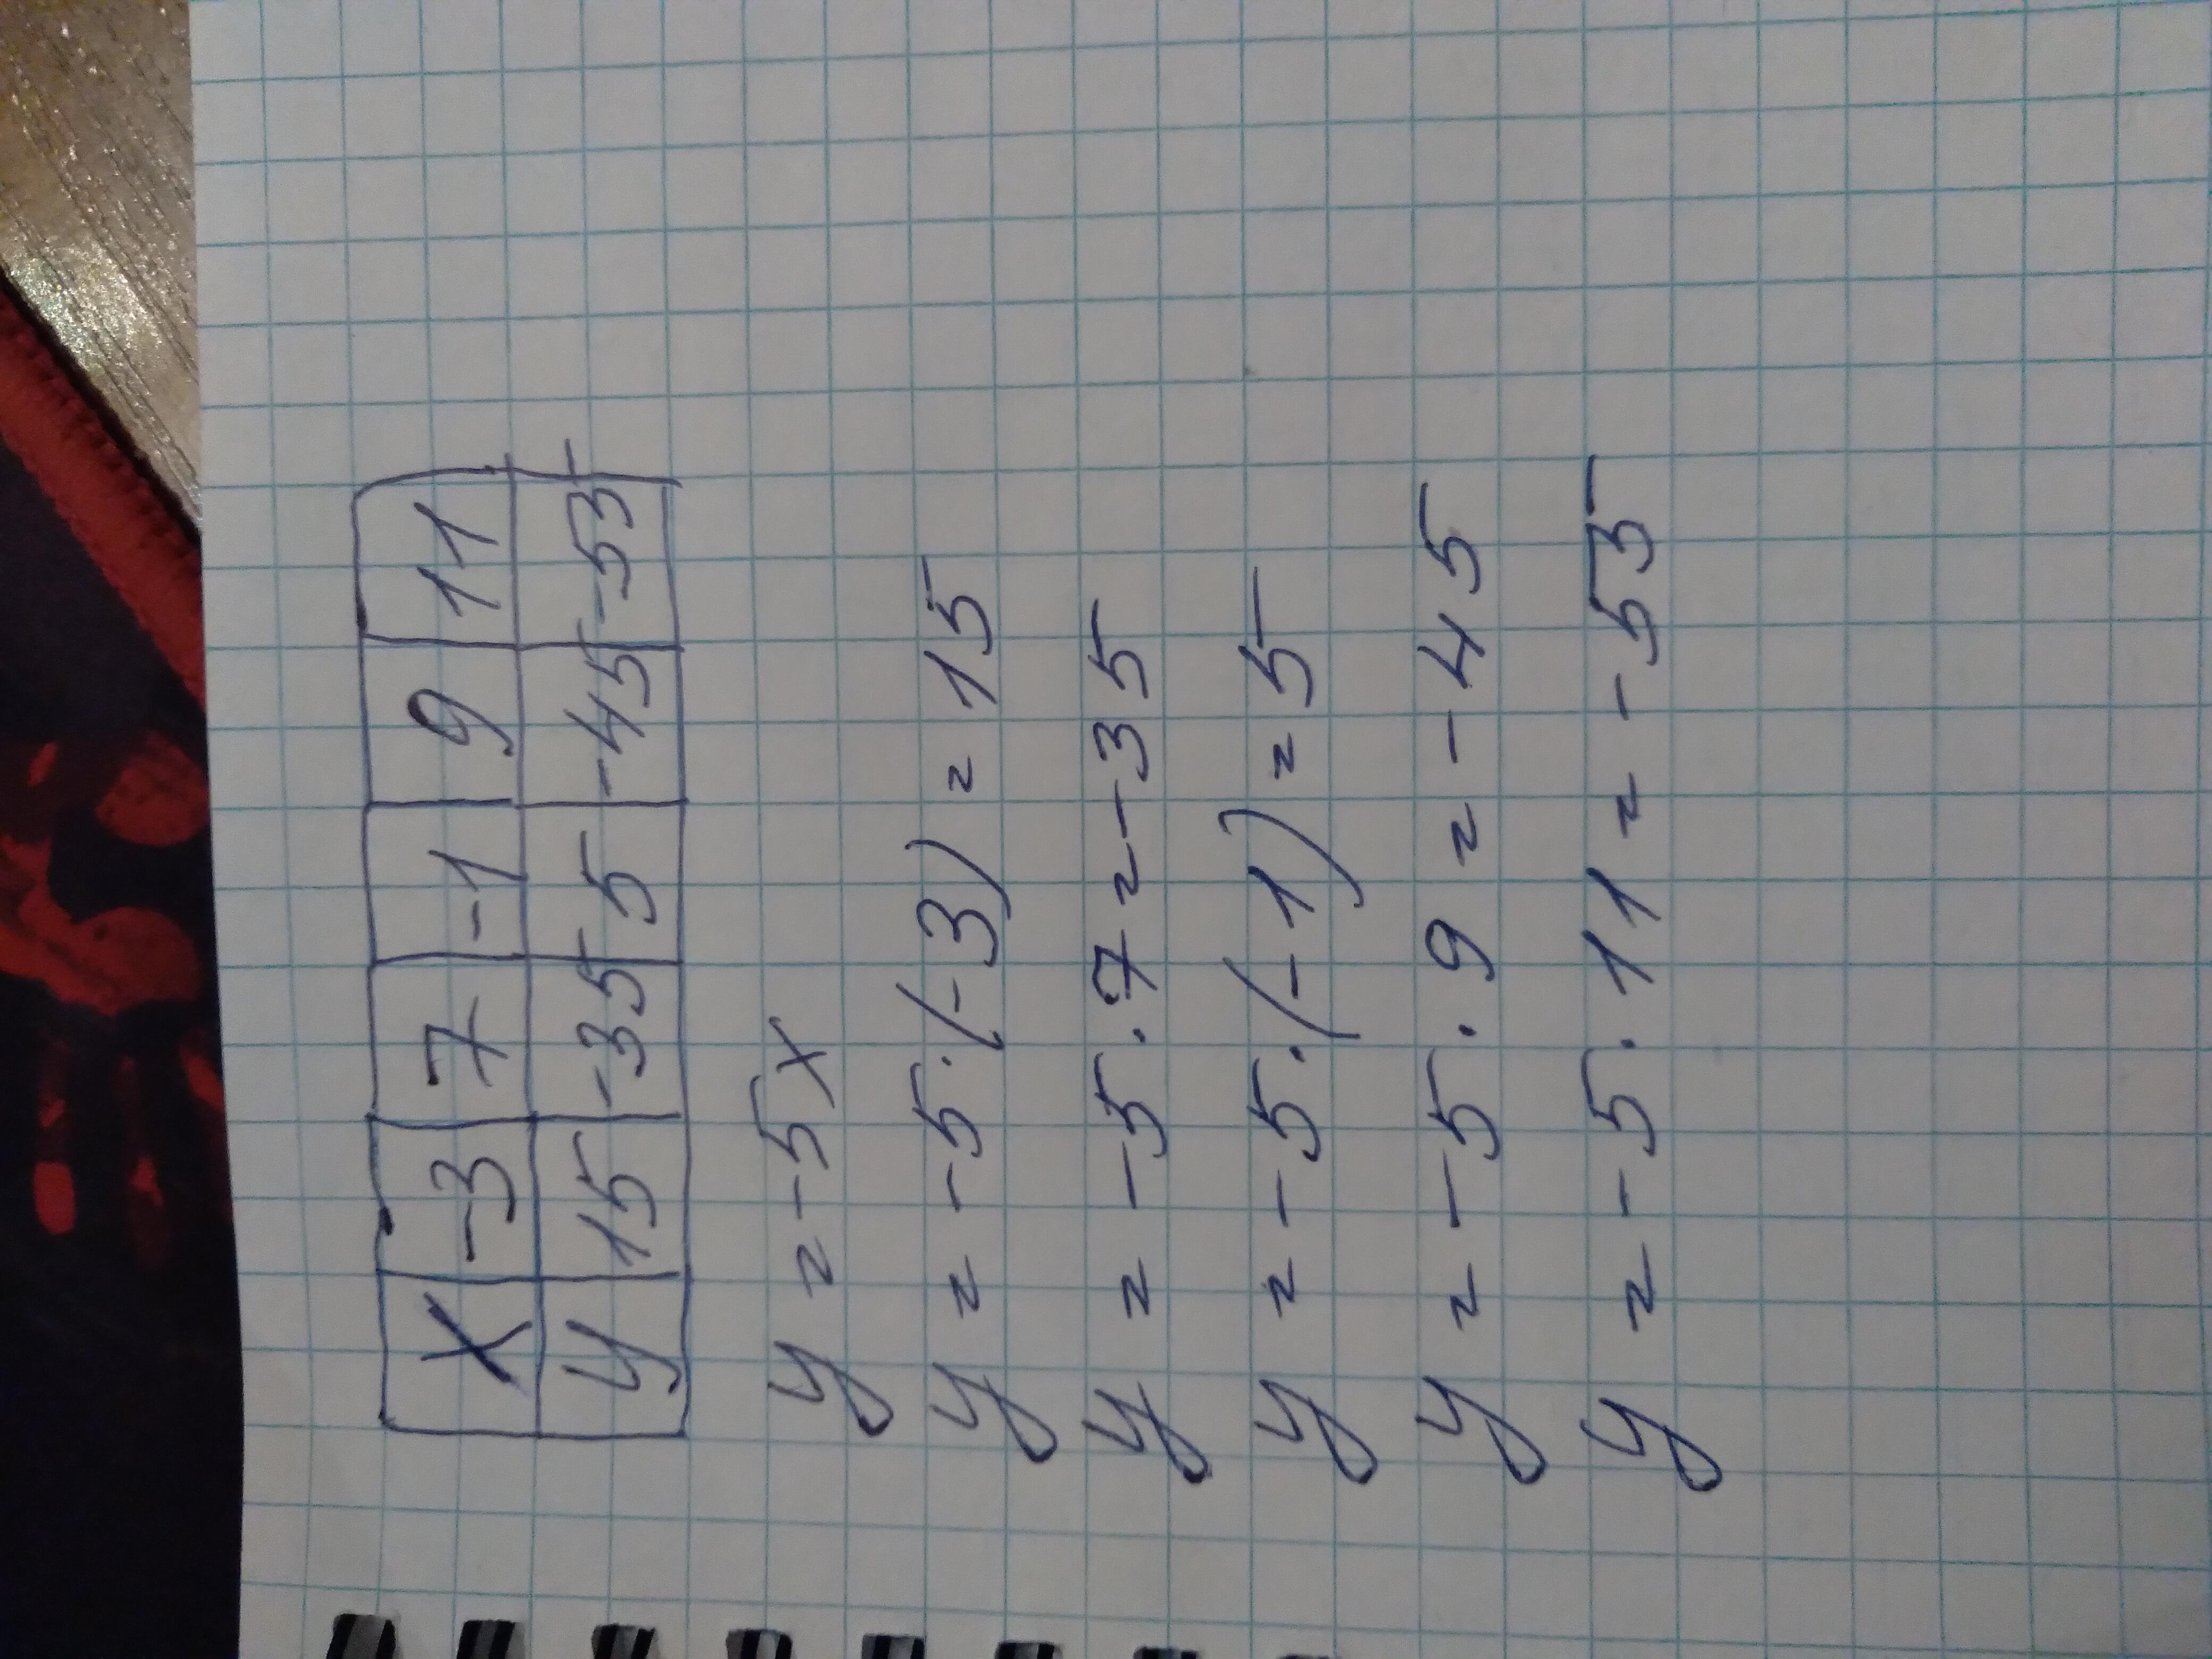 x -3 7 -1 9 11
y 15 -35 5 -45 -55
y = -5x
y = -5·(-3) = 15
y = -5·7 = -35
y = -5·(-1) = 5
y = -5·9 = -45
y = -5·11 = -55